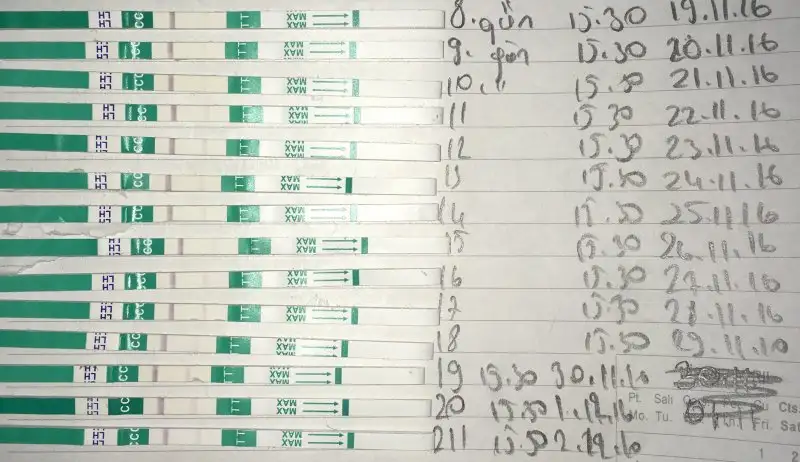 LH CC TT MAX 8. gün 15.30 19.11.16
LH CC TT MAX 9. gün 15.30 20.11.16
LH CC TT MAX 10. " 15.30 21.11.16
LH CC TT MAX 11 15 30 22.11.16
LH CC TT MAX 12 15.30 23.11.16
LH CC TT MAX 13 15.30 24.11.16
LH CC TT MAX 14 15.30 25.11.16
LH CC TT MAX 15 15.30 26.11.16
LH CC TT MAX 16 15.30 27.11.16
LH CC TT MAX 17 15.30 28.11.16
LH CC TT MAX 18 15.30 29.11.16
LH CC TT MAX 19 15.30 30.11.16
LH CC TT MAX 20 15.30 1.12.16
Pt. Salı Cts
Mo. Tu. Fri. Sat
LH CC TT MAX 21 15.30 2.12.16
1 2